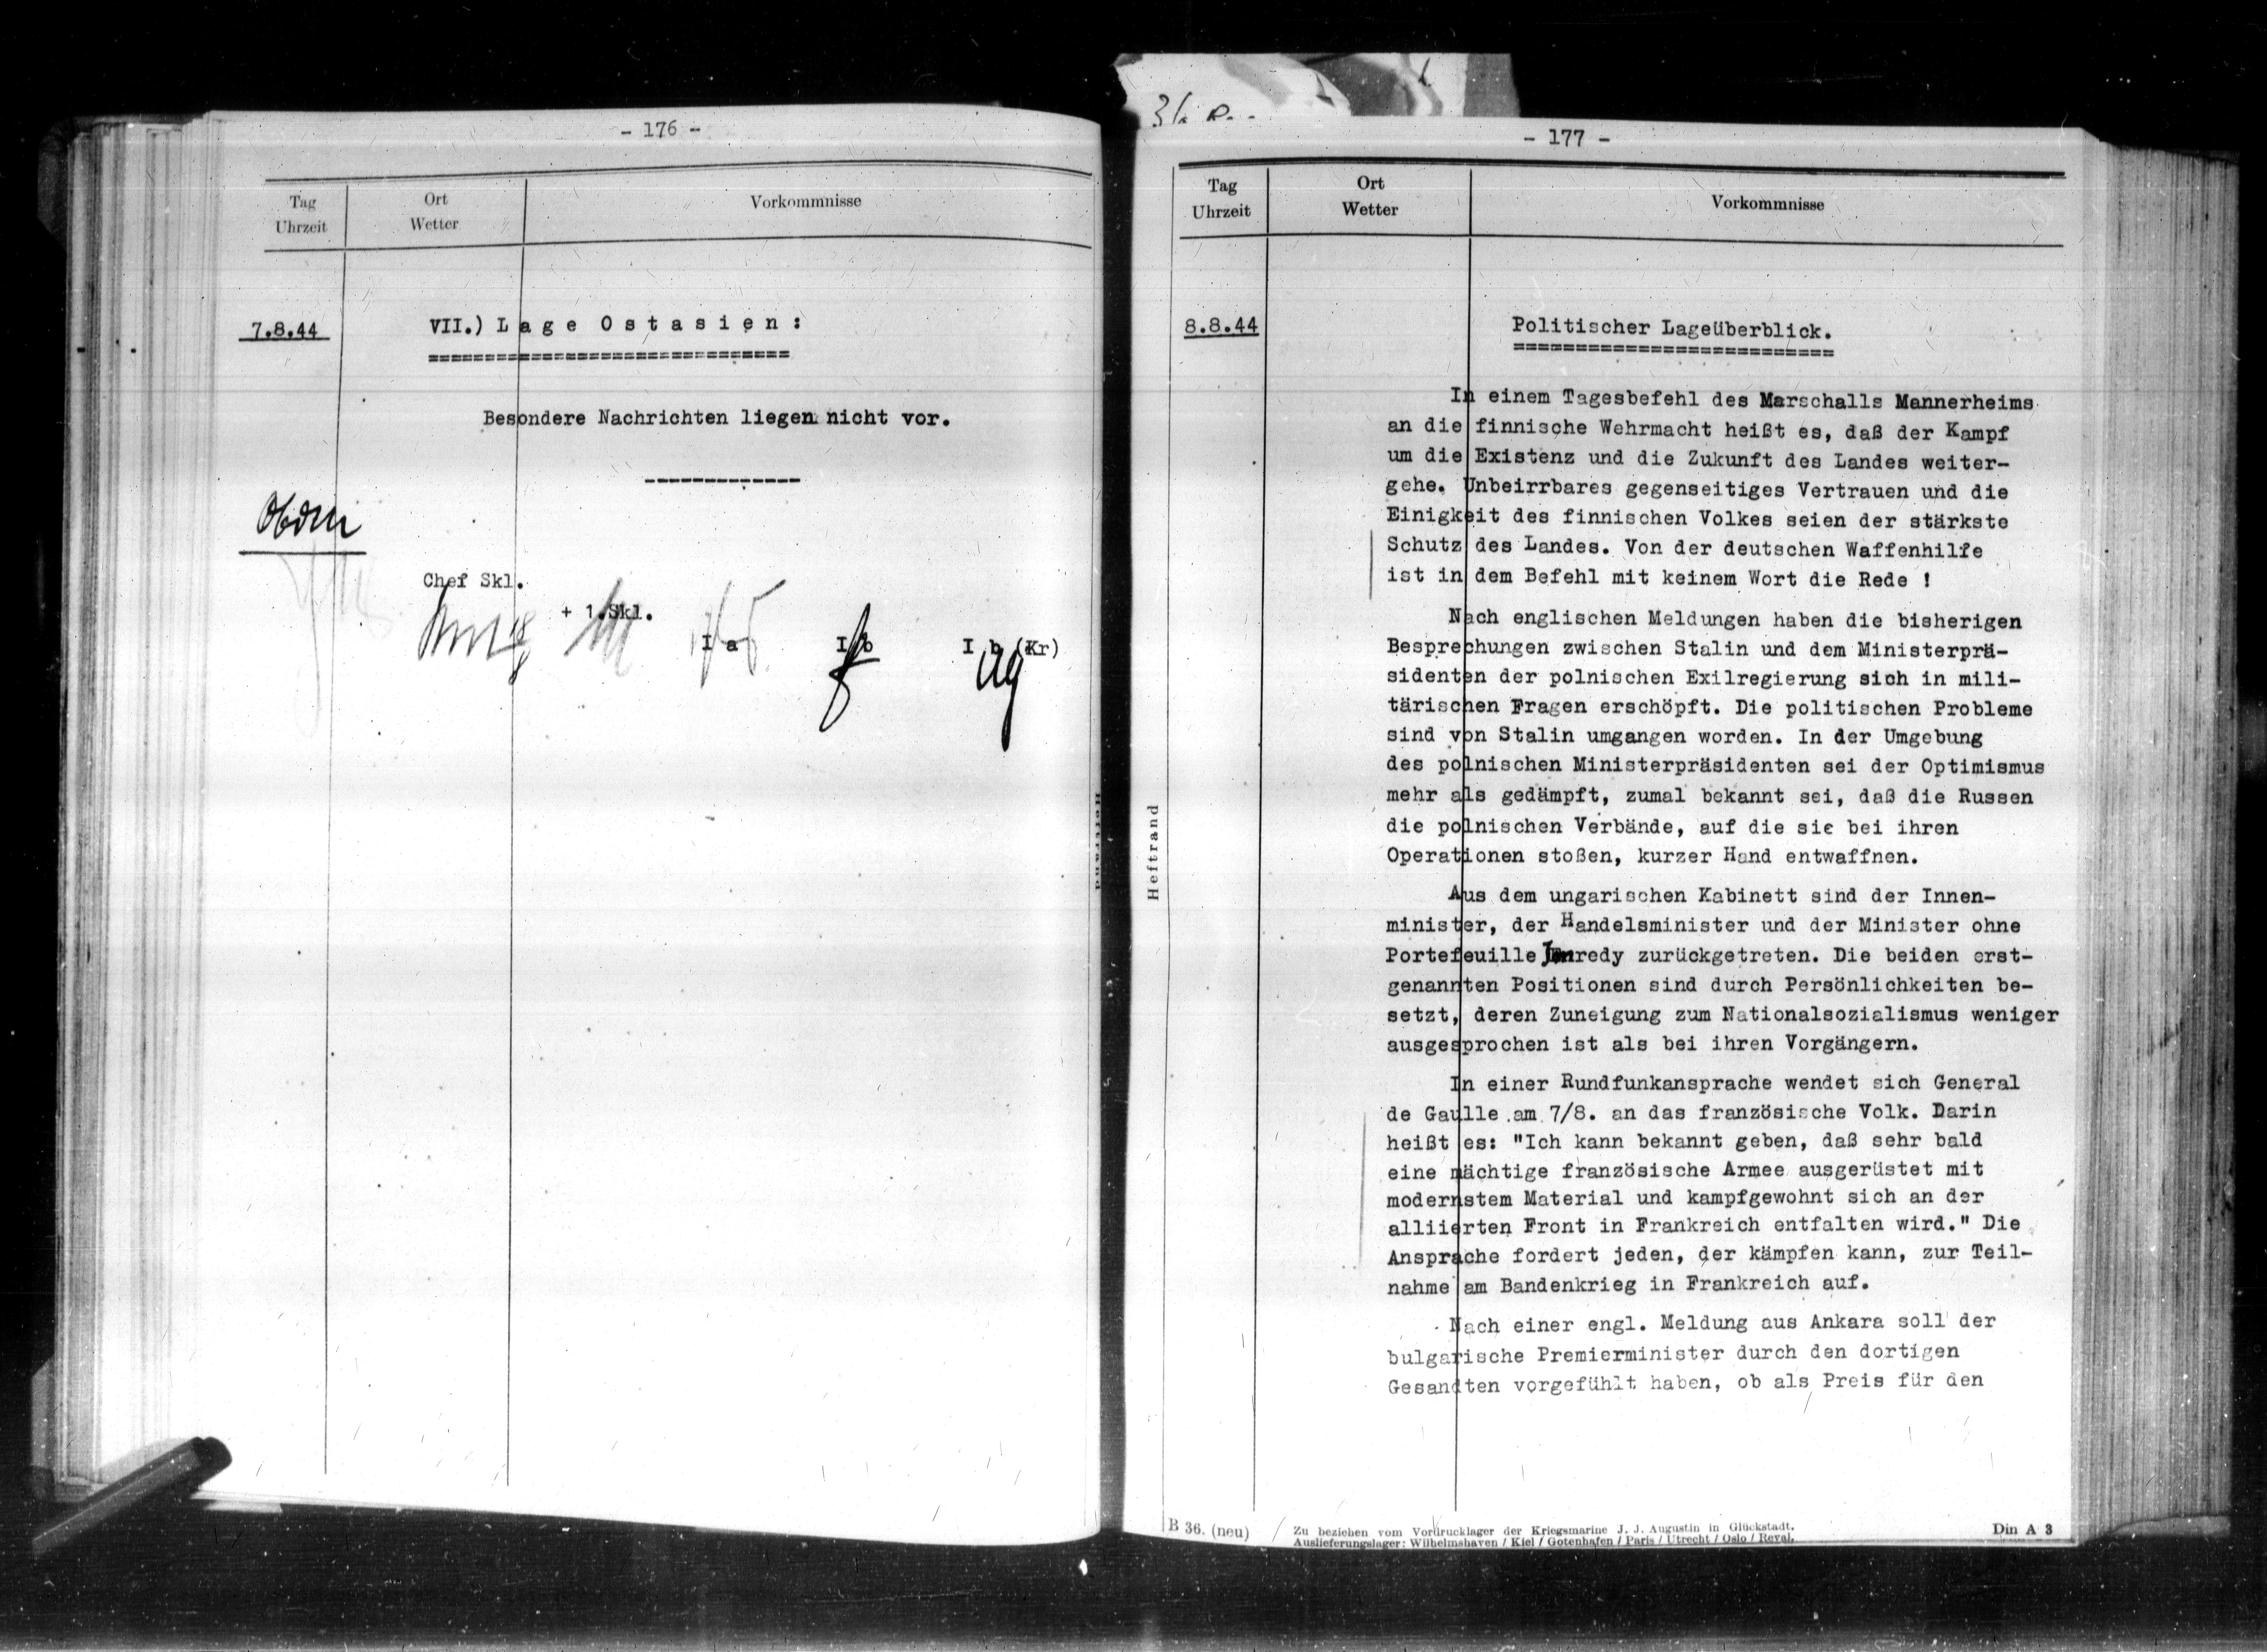 - 176 -
Tag
Uhrzeit
Ort
Wetter
Vorkommnisse
7.8.44
VII.) L a g e  O s t a s i e n :
Besondere Nachrichten liegen nicht vor.
Chef Skl.
+ 1.Skl.
I a
I b
I b (Kr)
Heftrand
- 177 -
Tag
Uhrzeit
Ort
Wetter
Vorkommnisse
8.8.44
Politischer Lageüberblick.
In einem Tagesbefehl des Marschalls Mannerheims
an die finnische Wehrmacht heißt es, daß der Kampf
um die Existenz und die Zukunft des Landes weiter-
gehe. Unbeirrbares gegenseitiges Vertrauen und die
Einigkeit des finnischen Volkes seien der stärkste
Schutz des Landes. Von der deutschen Waffenhilfe
ist in dem Befehl mit keinem Wort die Rede !
Nach englischen Meldungen haben die bisherigen
Besprechungen zwischen Stalin und dem Ministerprä-
sidenten der polnischen Exilregierung sich in mili-
tärischen Fragen erschöpft. Die politischen Probleme
sind von Stalin umgangen worden. In der Umgebung
des polnischen Ministerpräsidenten sei der Optimismus
mehr als gedämpft, zumal bekannt sei, daß die Russen
die polnischen Verbände, auf die sie bei ihren
Operationen stoßen, kurzer Hand entwaffnen.
Aus dem ungarischen Kabinett sind der Innen-
minister, der Handelsminister und der Minister ohne
Portefeuille Jmredy zurückgetreten. Die beiden erst-
genannten Positionen sind durch Persönlichkeiten be-
setzt, deren Zuneigung zum Nationalsozialismus weniger
ausgesprochen ist als bei ihren Vorgängern.
In einer Rundfunkansprache wendet sich General
de Gaulle am 7/8. an das französische Volk. Darin
heißt es: "Ich kann bekannt geben, daß sehr bald
eine mächtige französische Armee ausgerüstet mit
modernstem Material und kampfgewohnt sich an der
alliierten Front in Frankreich entfalten wird." Die
Ansprache fordert jeden, der kämpfen kann, zur Teil-
nahme am Bandenkrieg in Frankreich auf.
Nach einer engl. Meldung aus Ankara soll der
bulgarische Premierminister durch den dortigen
Gesandten vorgefühlt haben, ob als Preis für den
Heftrand
B 36. (neu)
Zu beziehen vom Vordrucklager der Kriegsmarine J. J. Augustin in Glückstadt.
Auslieferungslager: Wilhelmshaven / Kiel / Gotenhafen / Paris / Utrecht / Oslo / Reval.
Din A 3